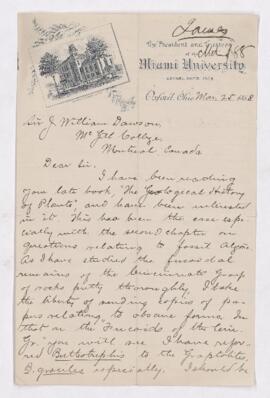 James
The President and Trustees
Miami University
Oxford, Ohio, Mar. 25 1888
Sir J William Dawson,
McGill College,
Montreal Canada
Dear Sir.
I have been reading
you late book "The Geological History
of Plants", and have been interested
in it. This has been the case esp-
ecially with the second chapter on
questions relating to fossil Algae.
As I have studied the fucoidal
remains of the Cincinnati Group
of rocks pretty thoroughly I take
the liberty of sending copies of pa-
pers relating to obscure forms. In
that on the "Fucoids of the Cin.
Gr." you will see I have refer-
red Buthotrephis to the Graptolites,
B. gracilis especially. I should be